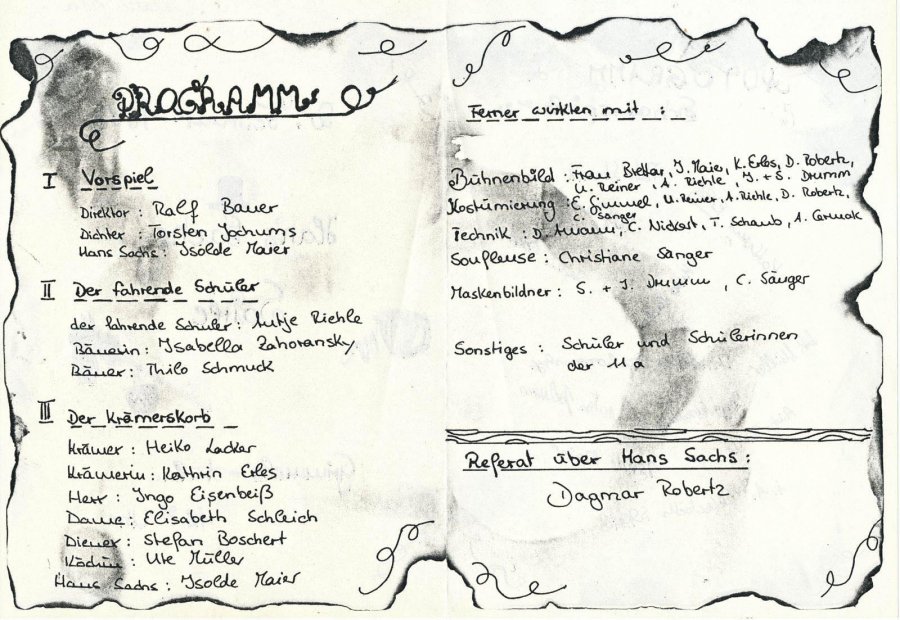 PROGRAMM
I Vorspiel
Direktor : Ralf Bauer
Dichter : Torsten Jochums
Hans Sachs : Isolde Maier
II Der fahrende Schüler
der fahrende Schüler : Antje Riehle
Bäuerin : Isabella Zahoransky
Bauer : Thilo Schmuck
III Der Krämerskorb
Krämer : Heiko Lacker
Krämerin : Kathrin Erles
Herr : Ingo Eisenbeiß
Dame : Elisabeth Schleich
Diener : Stefan Boschert
Köchin : Ute Müller
Hans Sachs : Isolde Maier
Ferner wirkten mit :
Bühnenbild : Frau I. Maier, K. Erles, D. Robertz,
U. Reiner, A. Riehle, J. + S. Drumm
Kostümierung : E. Gimmel, U. Reiner, A. Riehle, D. Robertz,
C. Sänger
Technik : D. C. Nickert, T. Schaub, A. Cermak
Soufleuse : Christiane Sänger
Maskenbildner : S. + J. Drumm, C. Sänger
Sonstiges : Schüler und Schülerinnen
der 11a
Referat über Hans Sachs :
Dagmar Robertz